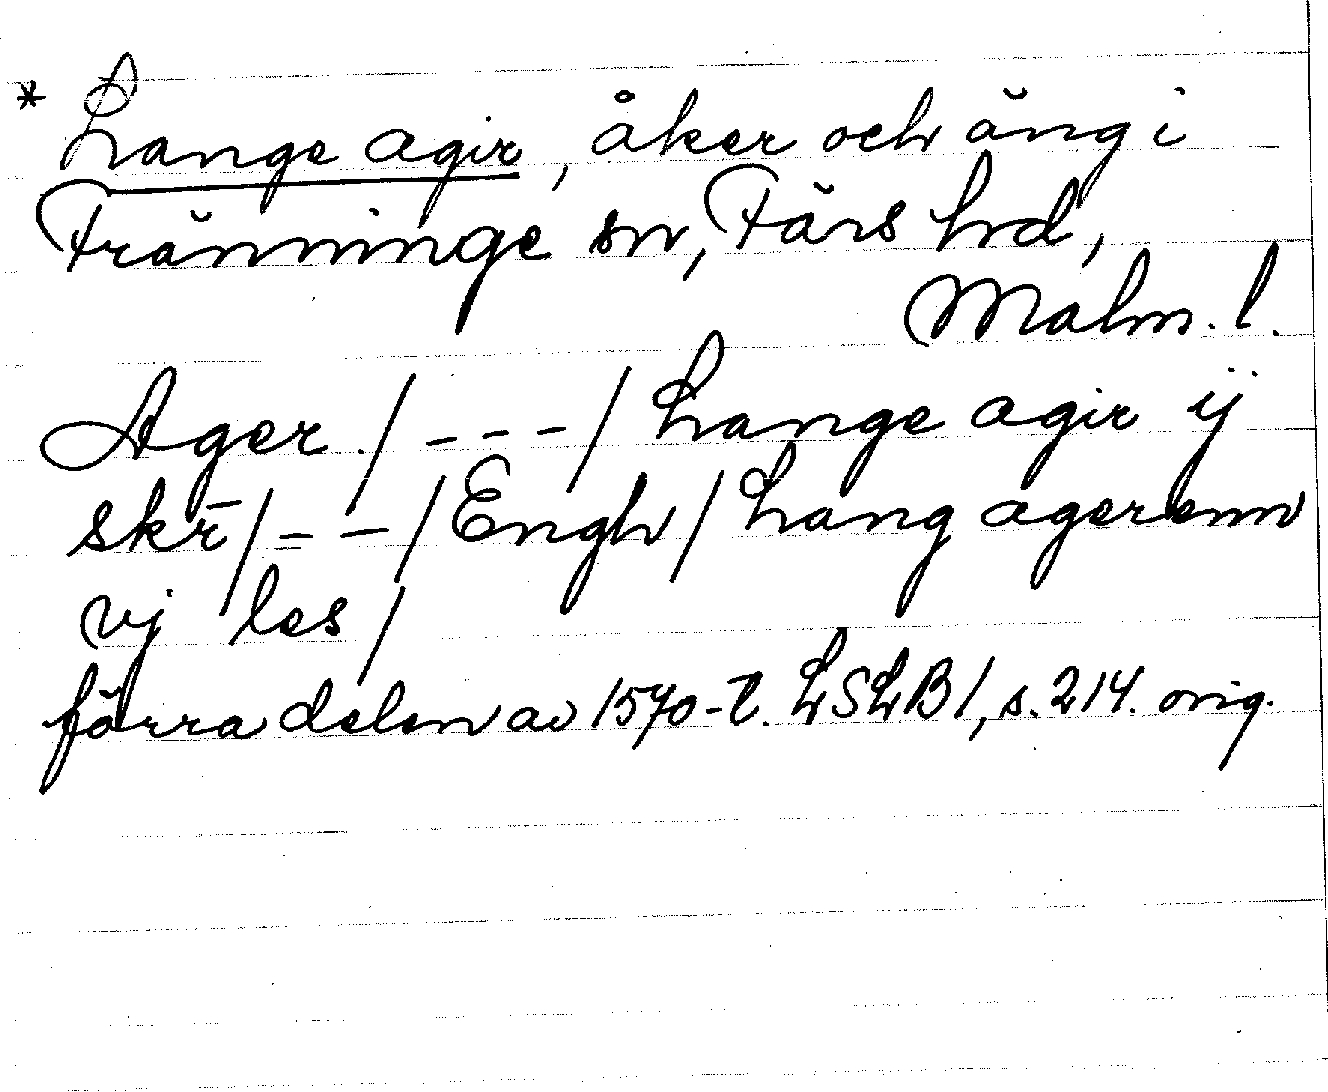 * Lange agir, åker och äng i
Tränninge sn, Färs hd,
Malm. l.
Ager / - - - / Lange agir ij
skr̄ / - - / Engh / Lang agerenn
vj les /
förra delen av 1570-t. LSLB 1, s. 214. orig.